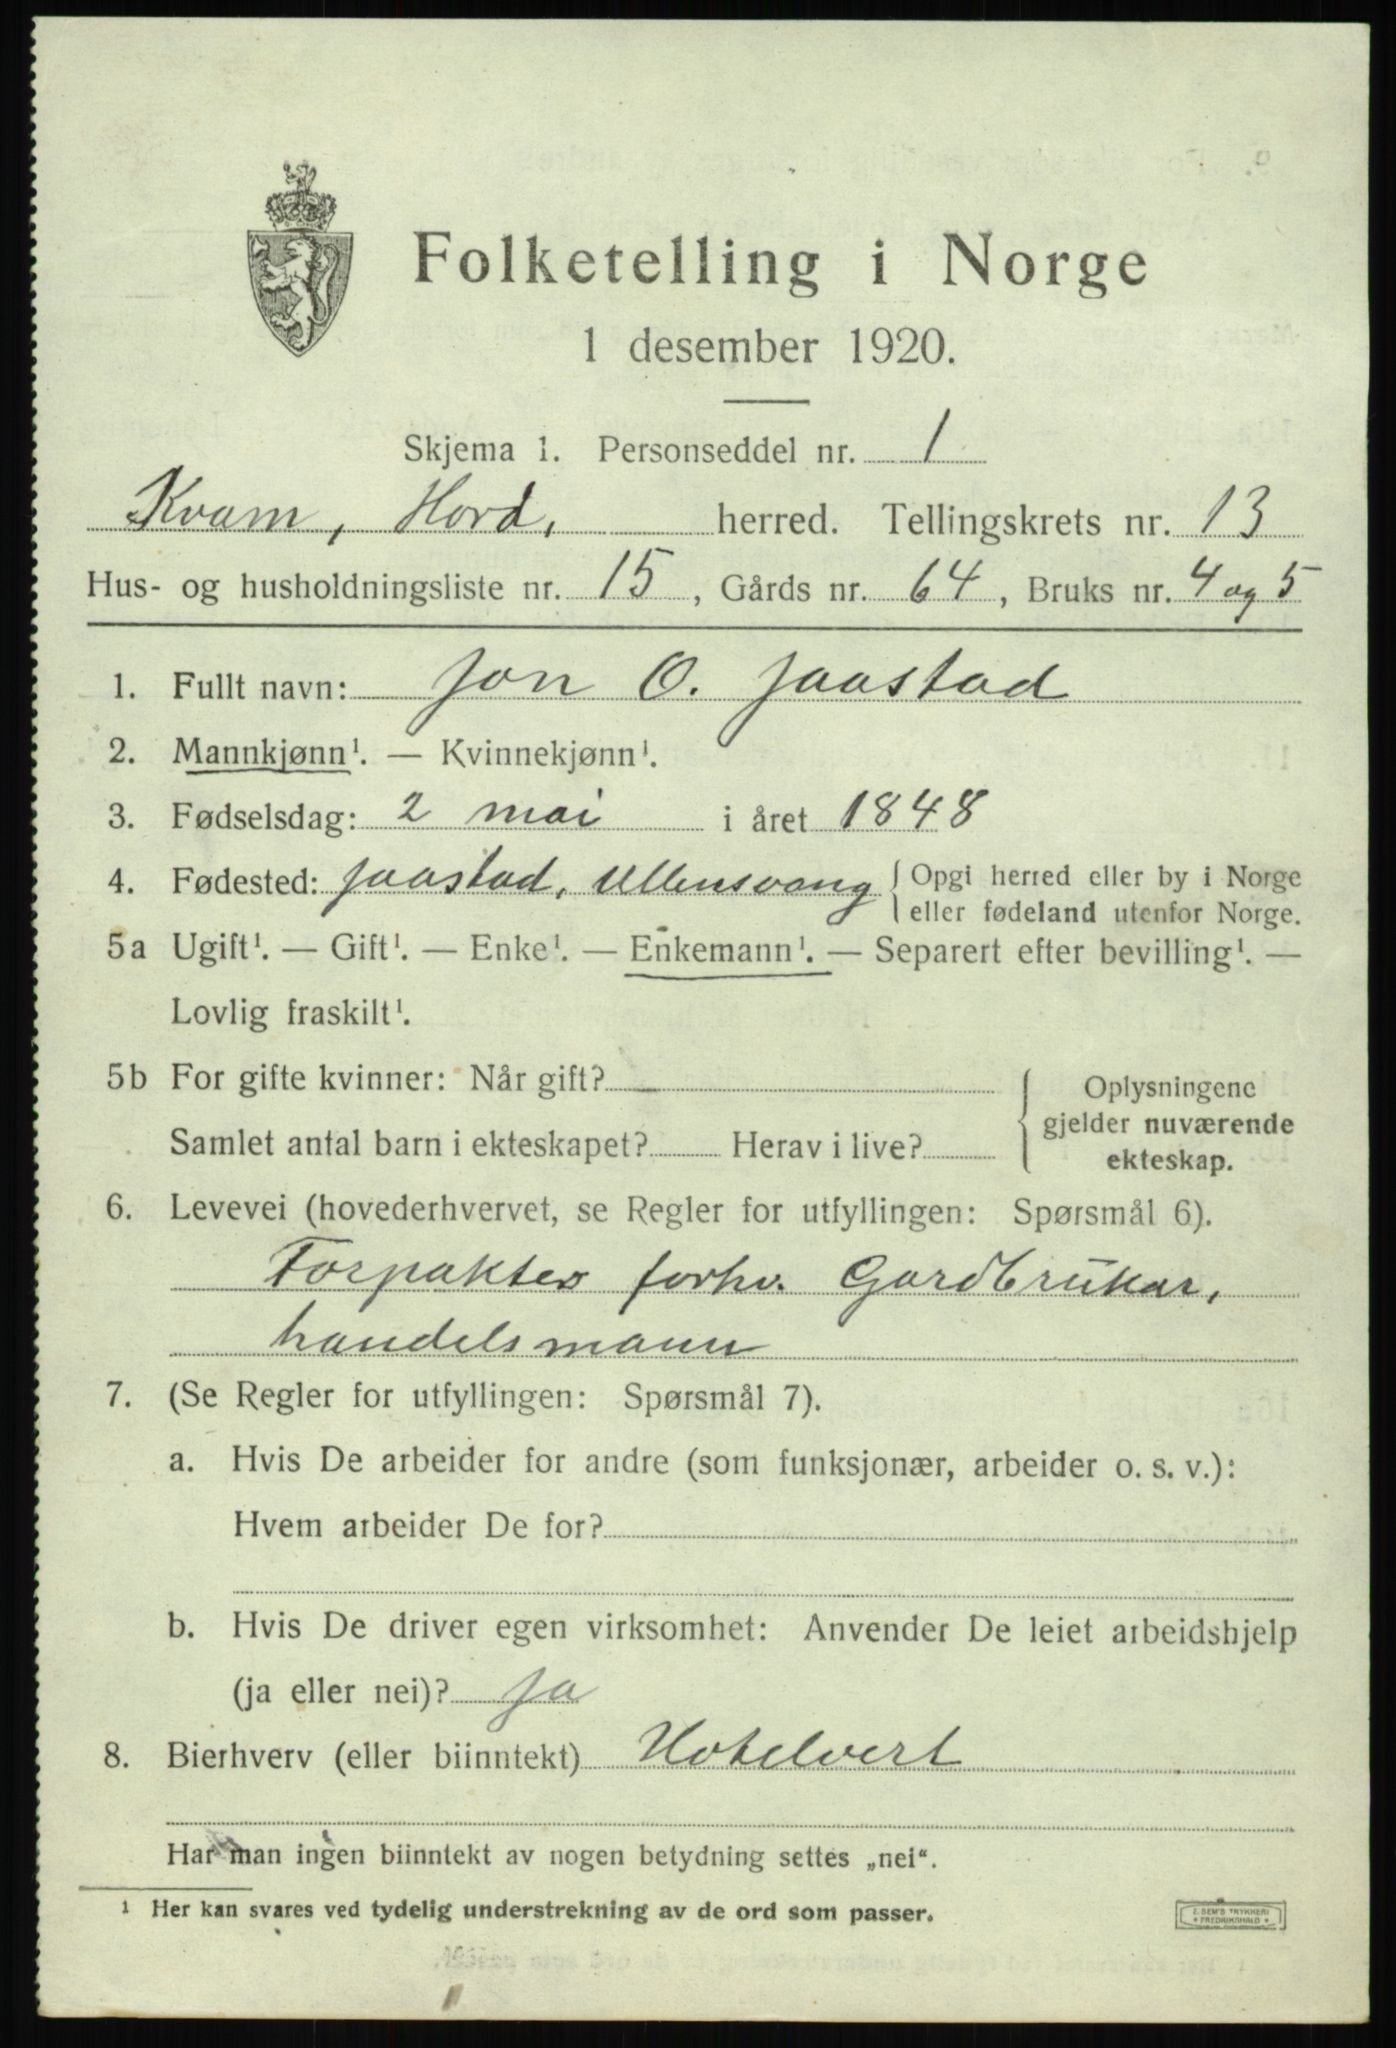 Folketelling i Norge
1 desember 1920.
Skjema 1. Personseddel nr. 1
Kvam, Hord, herred. Tellingskrets nr. 13
Hus- og husholdningsliste nr. 15, Gårds nr. 64, Bruks nr. 4 og 5
1. Fullt navn: Jon O. Jaastad
2. Mannkjønn¹. — Kvinnekjønn¹.
3. Fødselsdag: 2 mai i året 1848
4. Fødested: Jaastad, Ullensvang { Opgi herred eller by i Norge
eller fødeland utenfor Norge.
5a Ugift¹. — Gift¹. — Enke¹. — Enkemann¹. — Separert efter bevilling¹. —
Lovlig fraskilt¹.
5b For gifte kvinner: Når gift?
Samlet antal barn i ekteskapet? Herav i live?
Oplysningene
gjelder nuværende
ekteskap.
6. Levevei (hovederhvervet, se Regler for utfyllingen: Spørsmål 6).
Forpakter forhv. Gardbrukar,
handelsmann
7. (Se Regler for utfyllingen: Spørsmål 7).
a. Hvis De arbeider for andre (som funksjonær, arbeider o. s. v.):
Hvem arbeider De for?
b. Hvis De driver egen virksomhet: Anvender De leiet arbeidshjelp
(ja eller nei)? ja
8. Bierhverv (eller biinntekt) Hotelvert
Har man ingen biinntekt av nogen betydning settes „nei“.
¹ Her kan svares ved tydelig understrekning av de ord som passer.
E. SEM'S TRYKKERI
* FREDRIKSHALD *